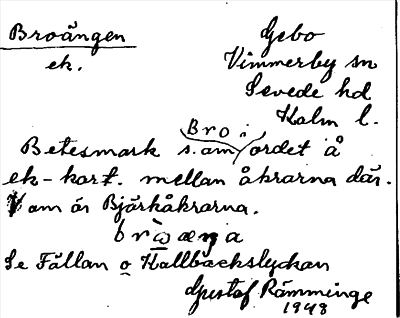 Broängen
ek.
Gebo
Vimmerby sn
Sevede hd
Kalm l.
Bro i
Betesmark s. om ordet å
ek-kart. mellan åkrarna där.
om är Björkåkrarna.
Se Fållan o Kallbäckslyckan
Gustof Rämminge
1948